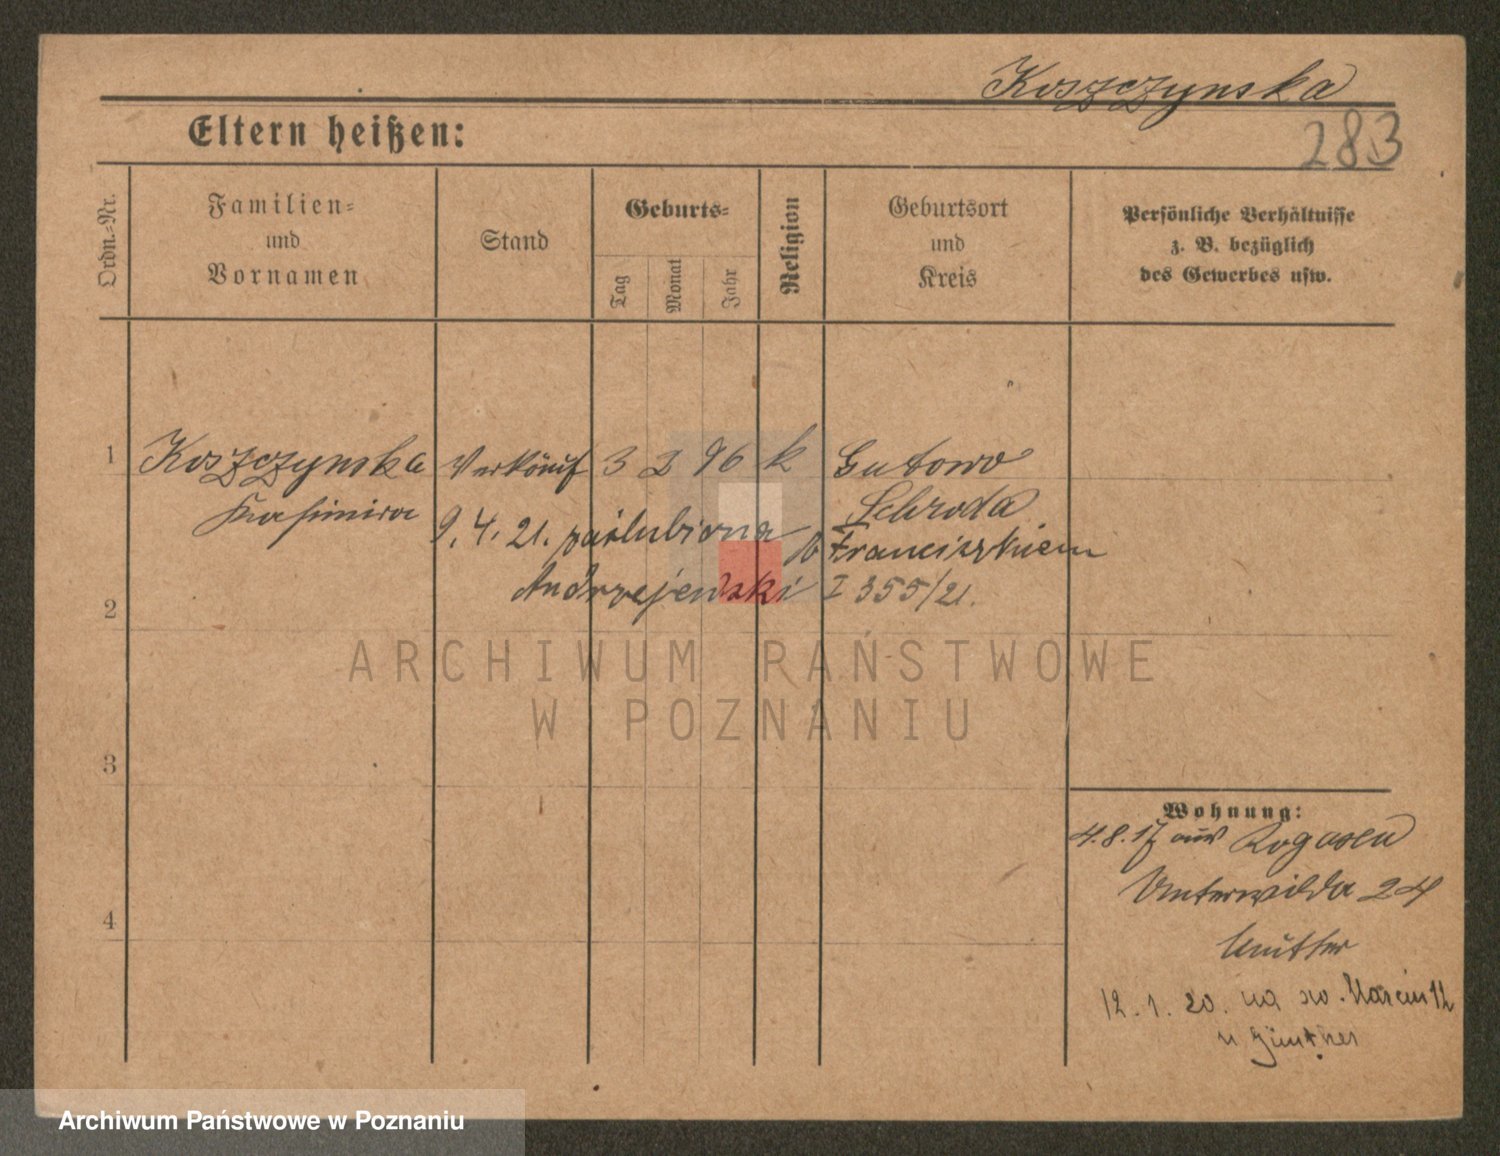 Koszczynska
Eltern heißen:
283
Ordn.-Nr.
Familien-
und
Vornamen
Stand
Geburts-
Tag
Monat
Jahr
Religion
Geburtsort
und
Kreis
Persönliche Verhältnisse
z. B. bezüglich
des Gewerbes usw.
1 Koszczynska Verkäuf 3 2 96 k Gutowo
Kasimira
Schroda
9.4.21. zaślubiona z Franciszkiem
Andrzejewski I 355/21.
2
ARCHIWUM PAŃSTWOWE
W POZNANIU
3
4
Wohnung:
4.8.17 aus Rogasen
Unterwilda 24
Mutter
12.1.20. na sw. Marcin 12
u Günther
Archiwum Państwowe w Poznaniu